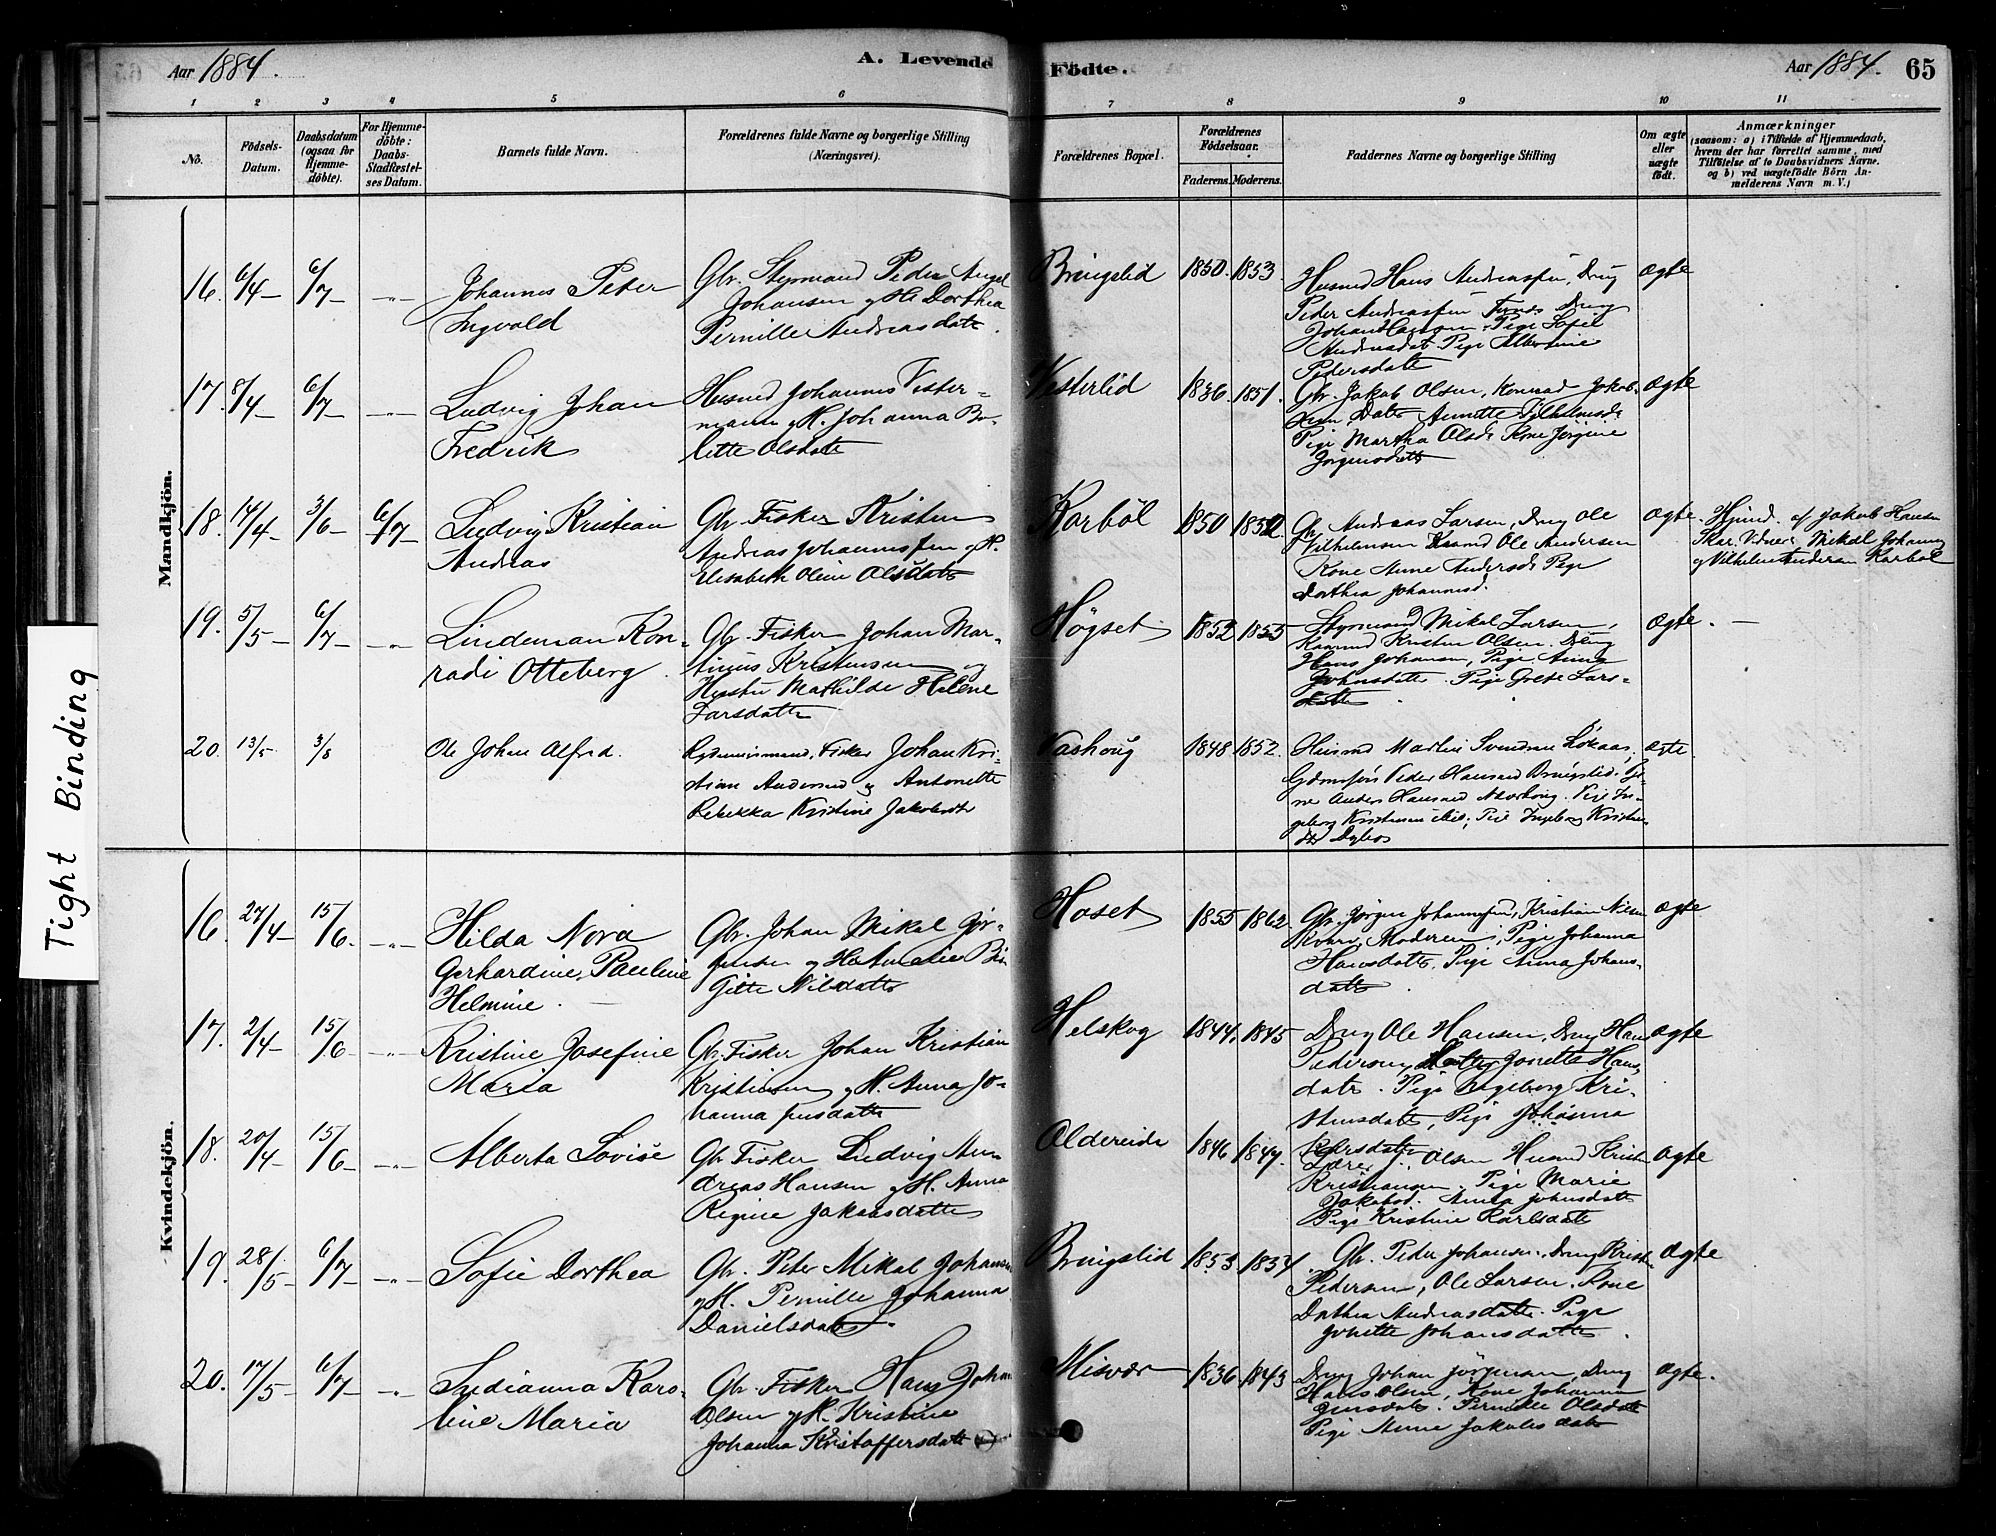 Aar 1884. A. Levende Födte. Aar 1884. 65
1 2 3 4 5 6 7 8 9 10 11
No. Födsels-Datum. Daabsdatum (ogsaa for Hjemmedöbte). For Hjemmedöbte: Daabs-Stadfestelses Datum. Barnets fulde Navn. Forældrenes fulde Navne og borgerlige Stilling (Næringsvei). Forældrenes Bopæl. Forældrenes Födselsaar. Faderens. Moderens. Faddernes Navne og borgerlige Stilling Om ægte eller uægte födt. Anmærkninger (saasom: a) i Tilfælde af Hjemmedaab, hvem der har forrettet samme, med Tilföielse af to Daabsvidners Navne, og b) ved uægtefödte Börn Anmelderens Navn m. V.)
Mandkjön.
16. 6/4 6/7 Johannes Peter
Ingvold
Gbr. Styrmand Peder Angel
Johansen og H. Dorthea
Pernille Andreasdatr.
Bringslid 1850. 1853
Husmd Hans Andreassen, Dreng
Peder Andreassen
Johan Hansen. Pige Sofie
Andreasdat. Pige Albertine
Pedersdatr
ægte
17. 8/4 6/7 Ludvig Johan
Fredrik
Husmd Johannes Vister-
mann og H. Johanna Bo-
lette Olsdatr
Vesterlid 1836 1851.
Gbr. Jakob Olsen, Konrad Jakob-
sen, Datr Annette Vilhelmsd.
Pige Martha Olsd. Kone Jørgine
Jørgensdatr
ægte
18. 14/4 3/6 6/7 Ludvig Kristian
Andreas
Gbr. Fisker Kristen
Andreas Johannessen og H.
Elisabeth Oline Olsdatr
Karbøl 1850
Gbr. Andreas Larsen, Dreng Ole
Vilhelmsen Ole Andersen
Kone Anne Andersd. Pige
Dorthea Johannesd.
ægte.
Hjemd. af Jakob Hansen
Skar. Vidner Mikal Johannes
og Vilhelm Andersen Karbøl
19. 5/5 6/7 Lindeman Kon-
radi Otteberg.
Gbr. Fisker Johan Mar-
tinus Kristensen og
Hustru Mathilde Helene
Larsdatr
Høgset 1852 1855
Styrmand Mikal Larsen,
Kristen Olsen. Dreng
Hans Johansen, Pige Anna
Johnsdatr. Pige Grete Lars-
datr.
ægte.
20. 13/5 3/8 Ole Johan Alfred.
Fisker Johan Kri-
stian Andersen og Antonette
Rebekka Kristine Jakobsdtr
Vashoug 1848 1852.
Husmd Martin Svendsen Løkaas,
Peder Hansen Bringslid.
Anders Hansen Pige In-
geborg Kristensen Pige Ingeborg Kristens-
dtr
ægte
Kvindekjön.
16. 27/4 15/6. Hilda Nora
Gerhardine, Pauline
Helmine.
Gbr. Johan Mikal Jør-
gensen og H. Bir-
gitte Nilsdatr
Hoset 1855 1862.
Gbr. Jørgen Johannessen, Kristian Nilsen
Moderen, Pige Johanna
Hansdatr, Pige Anna Johans-
datr
ægte
17. 2/4 15/6 Kristine Josefine
Maria
Gbr. Fisker Johan Kristian
Kristiansen og H. Anna Jo-
hanna Jensdatr
Helskog 1844. 1845
Dreng Ole Hansen, Dreng Hans
Pedersen, Jonetta Hans-
datr. Pige Ingeborg Kri-
stensdatr, Pige Johanna
Larsdatr
ægte
18. 20/4 15/6 Alberta Lovise
Gbr Fisker Ludvig An-
dreas Hansen og H. Anna
Regine Jakobsdatr
Oldereide 1846 1847.
Lærer J. Olsen Husmd Kristen
Kristiansen. Pige Marie
Jakobsd. Anna Johnsdatr
Pige Kristine Karlsdatr
ægte
19. 28/5 6/7 Sofie Dorthea
Gbr. Peter Mikal Johansen
og H. Pernille Johanna
Danielsdatr.
Bringslid 1853 1857.
Gbr. Peder Johansen, Dreng Kristen
Pedersen, Ole Larsen. Kone
Dorthea Andreasdatr. Pige
Jonette Johansdatr.
ægte
20. 17/5 6/7 Indianna Karo-
line Maria
Gbr. Fisker Hans Johan
Olsen og H. Kristine
Johanna Kristoffersdatr
Misvær 1836 1843
Dreng Johan Jørgensen, Dreng
Hans Olsen, Kone Johanna
Jensdatr. Pernille Olsdatr
Pige Anne Jakobsdatr
ægte.
Tight Binding